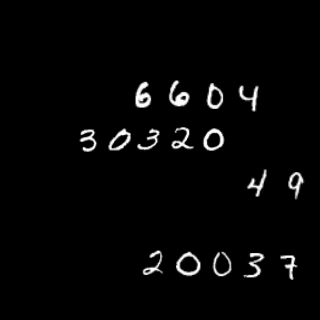 6604
30320
49
20037